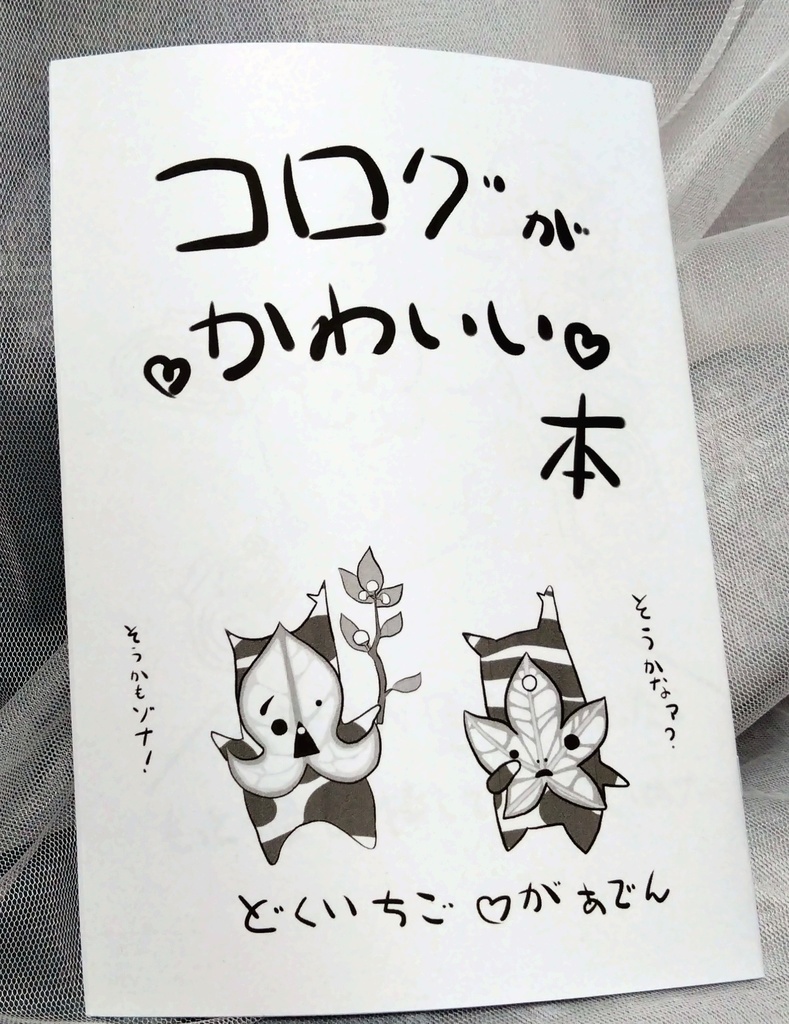 コログが
♡かわいい♡
本
そうかなァ?
そうかもゾナ!
どくいちご♡があでん